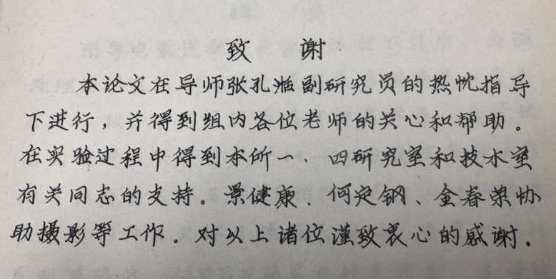 致 谢
本论文在导师张孔湉副研究员的热忱指导
下进行，并得到组内各位老师的关心和帮助。
在实验过程中得到本所一、四研究室和技术室
有关同志的支持。景健康、何定钢、金春荣协
助摄影等工作。对以上诸位谨致衷心的感谢。